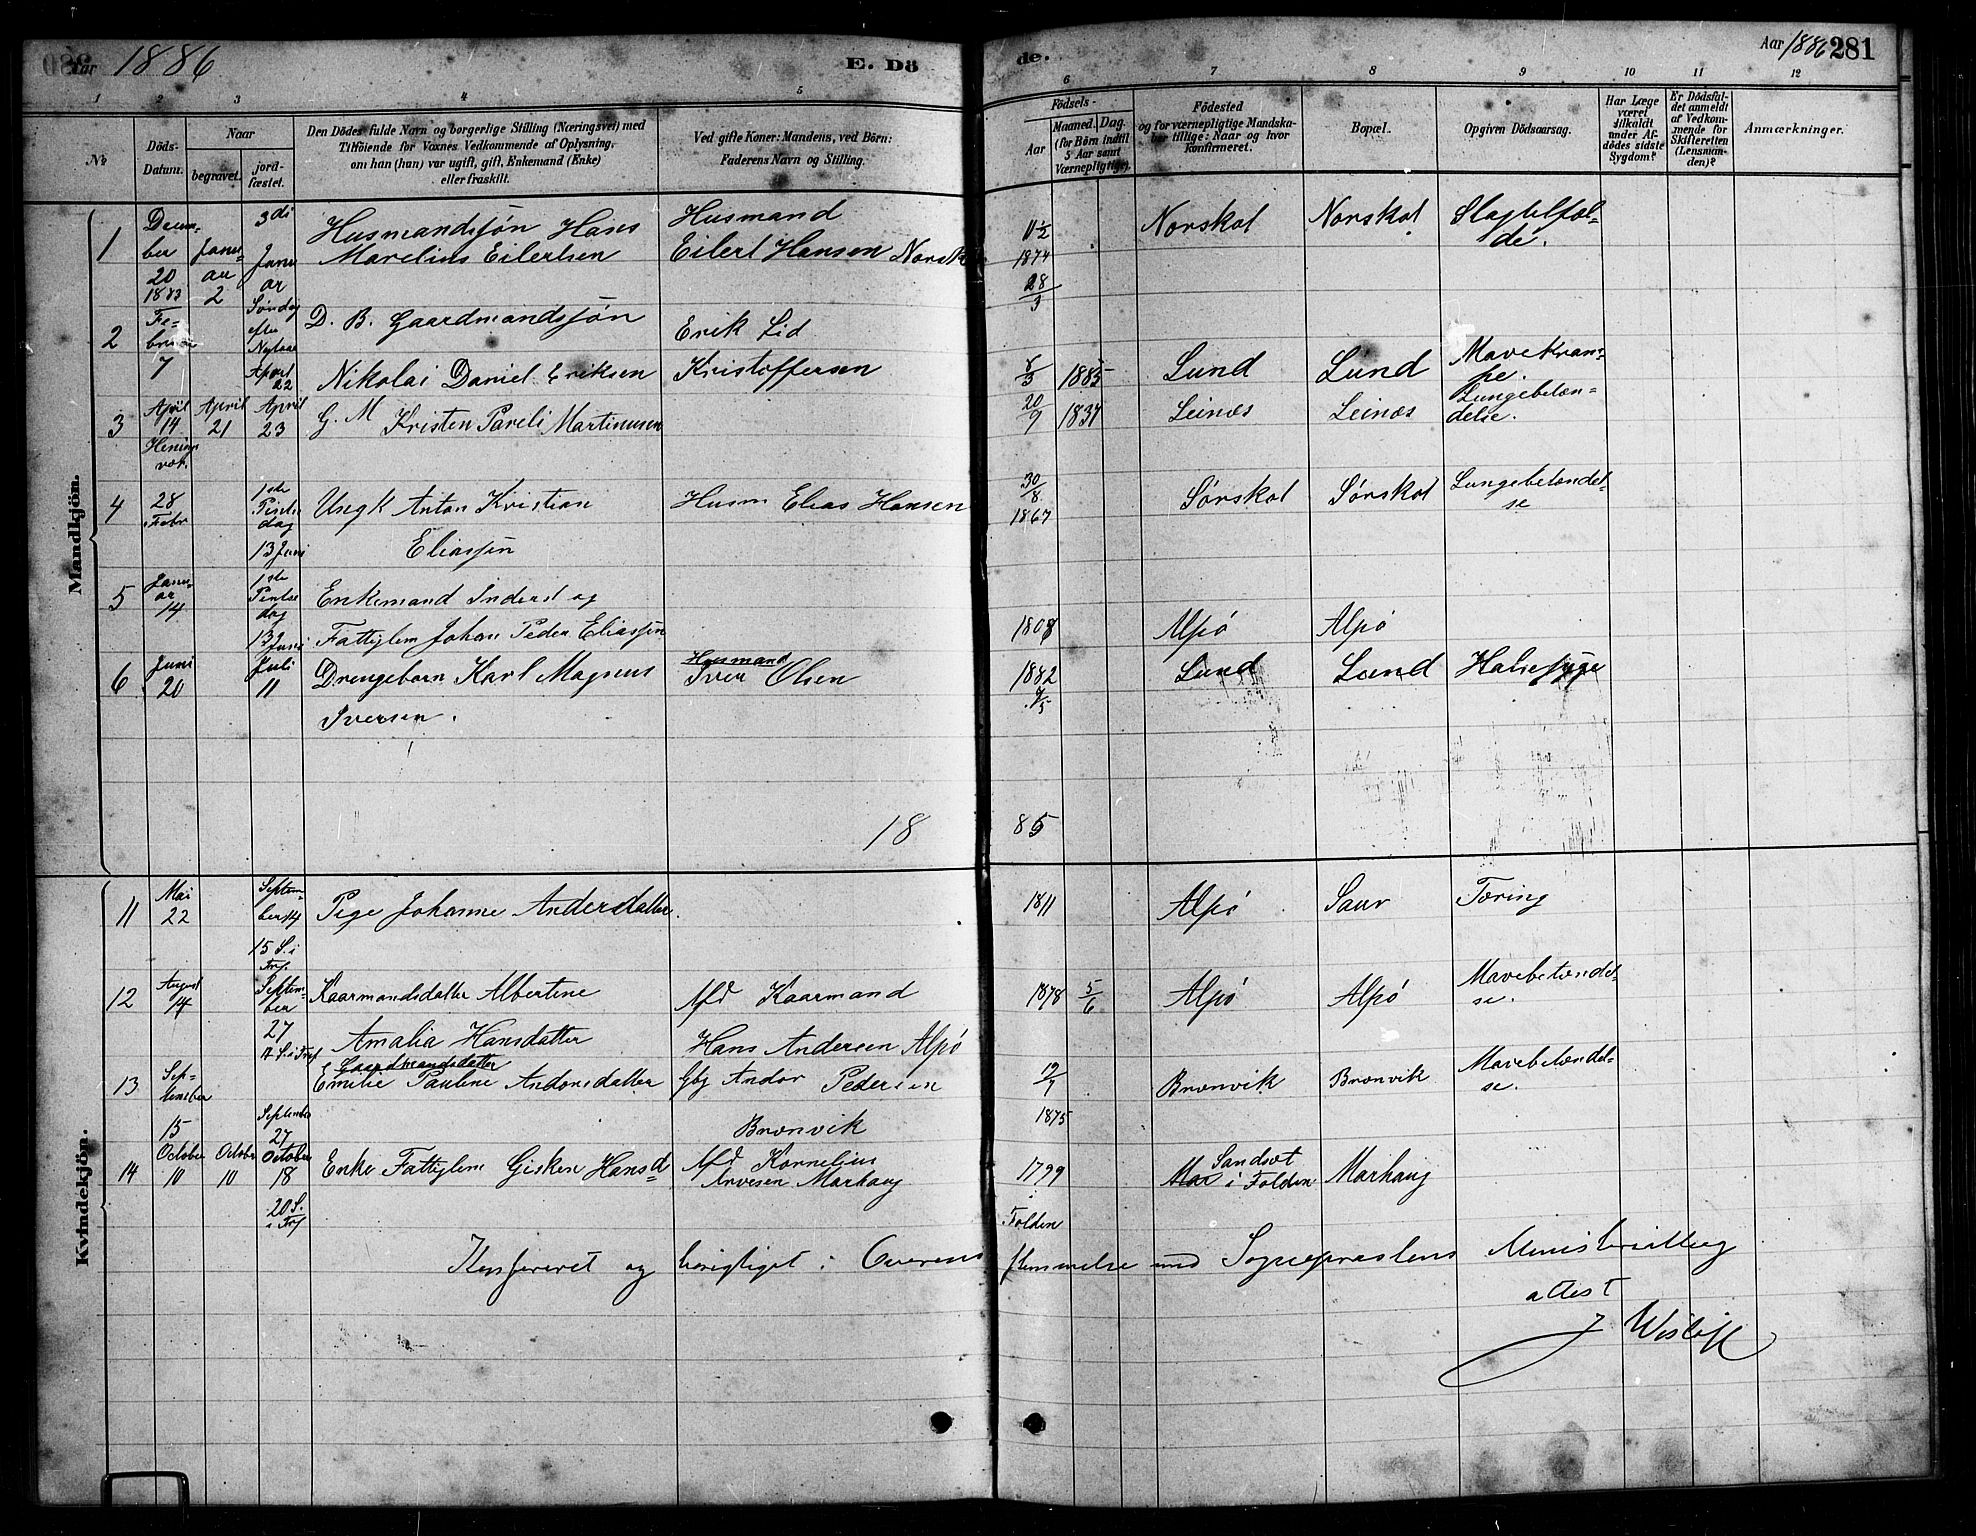 Aar 1886
E. Dö
de.
Aar 1886 281
1 2 3 4 5 6 7 8 9 10 11 12
No
Döds-
Datum.
Naar
begravet.
jord-
fæstet.
Den Dödes fulde Navn og borgerlige Stilling (Næringsvei) med
Tilföiende for Voxnes Vedkommende af Oplysning,
om han (hun) var ugift, gift, Enkemand (Enke)
eller fraskilt.
Ved gifte Koner: Mandens, ved Börn:
Faderens Navn og Stilling.
Födsels-
Aar
Maaned. Dag.
(for Börn indtil
5 Aar samt
Værnepligtige).
Födested
og for værnepligtige Mandska-
ber tillige: Naar og hvor
Konfirmeret.
Bopæl.
Opgiven Dödsaarsag.
Har Læge
været
tilkaldt
under Af-
dödes sidste
Sygdom?
Er Dödsfal-
det anmeldt
af Vedkom-
mende for
Skifteretten
(Lensman-
den)?
Anmærkninger.
Mandkjön.
1
Decem-
ber
20
1883
Janu-
ar
2
3di
Janu
ar
Søndag
efter
Nytaar
Husmandssøn Hans
Marelius Eilertsen
Husmand
Eilert Hansen Norsk
11½
1874
28/3
Norskot Norskot Slagtilfæl-
de.
2
Fe-
bruar
7
April
22
D. B. Gaardmandssøn
Nikolai Daniel Eriksen
Erik Lid
Kristoffersen
8/3 1885
Lund Lund Mavekram-
pe
3
April
14
Henings
vær.
April
21
April
23
G. M Kristen Pareli Martinusen
20/9 1837
Leinæs Leinæs Lungebetæn-
delse.
4
28
Febr
1ste
Pintse
dag
13 Juni
Ungk Anton Kristian
Eliassøn
Husm Elias Hansen
30/8
1867
Sørskot Sørskot Lungebetændel-
se
5
Janu-
ar
14
1ste
Pintse
dag
13 Juni
Enkemand Inderst og
Fattiglem Johan Peder Eliassøn
1808
Alpø Alpø
6
Juni
20
Juli
11
Drengebarn Karl Magnus
Iversen.
Husmand
Iver Olsen
1882
Lund Lund Halssyge
18 85
Kvindekjön.
11
Mai
22
Septem-
ber 14
15 S. i
Trf.
Pige Johanne Andersdatter.
1811
Alpø Saur Tæring
12
August
14
Septem-
ber
27
S. i Tref
Kaarmandsdatter Albertine
Amalia Hansdatter
Afd Kaarmand
Hans Andersen Alpø
1878 5/6
Alpø Alpø Mavebetændel-
se.
13
Sep-
tember
15
September
27
Gaardmandsdatter
Emilie Pauline Andorsdatter
Gbj Andor Pedersen
Brænvik
19/7
1875
Brænvik Brænvik Mavebetændel-
se.
14
October
10
October
10
October
18
20 S.
i Trf
Enke Fattiglem Gisken Hansd=
Afd Kornelius
Arvesen Marhaug
1799
i
Folden
Sandsæt
i Folden
Marhaug
Konfereret og berigtiget i Overens stemmelse med Sognepræstens Ministerialbog
attest
J Wisløff